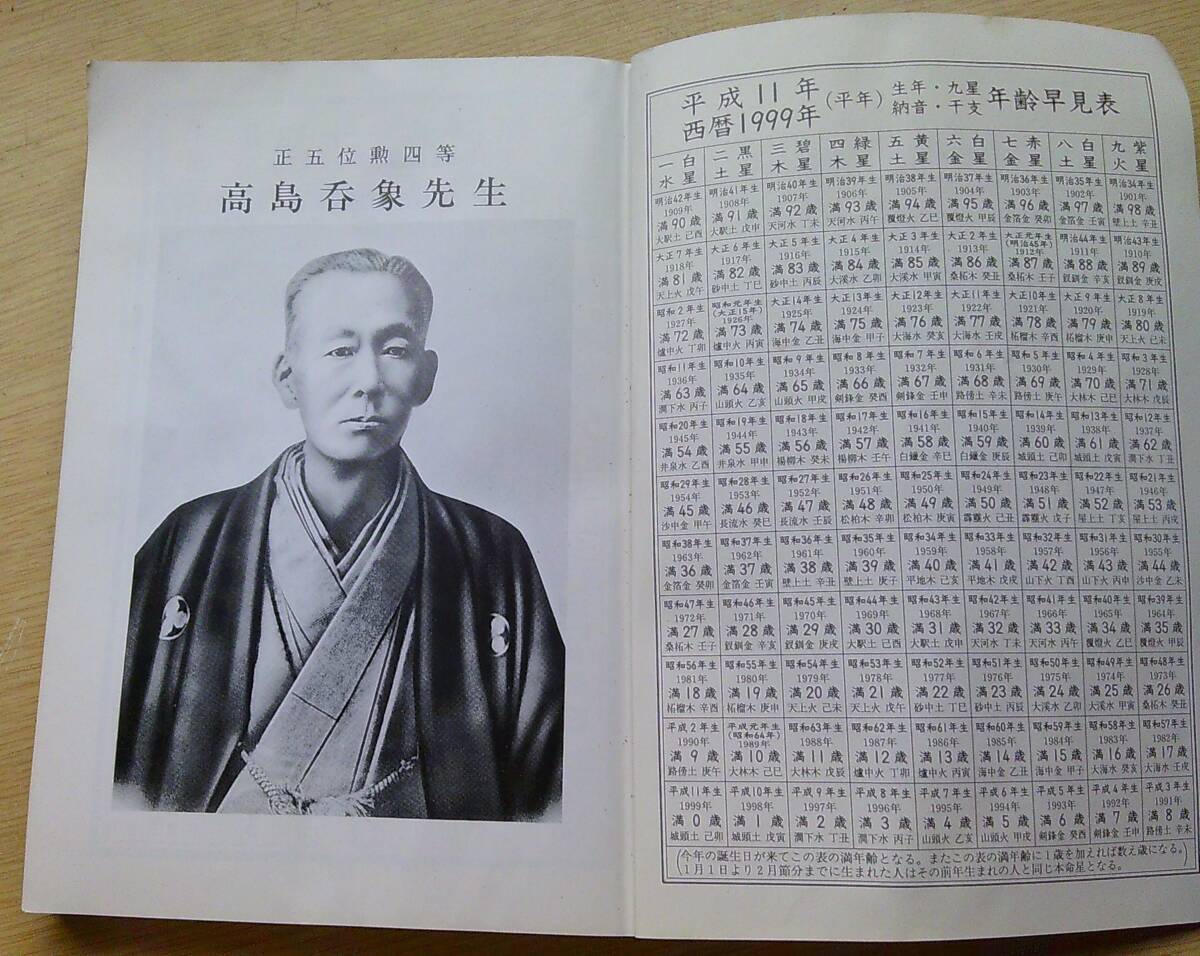 正五位勲四等
高島呑象先生
平成11年
西暦1999年
(平年)
生年・九星
納音・干支
年齢早見表
一白水星 二黒土星 三碧木星 四緑木星 五黄土星 六白金星 七赤金星 八白土星 九紫火星
明治42年生 明治41年生 明治40年生 明治39年生 明治38年生 明治37年生 明治36年生 明治35年生 明治34年生
1909年 1908年 1907年 1906年 1905年 1904年 1903年 1902年 1901年
満90歳 満91歳 満92歳 満93歳 満94歳 満95歳 満96歳 満97歳 満98歳
大駅土 己酉 大駅土 戊申 天河水 丁未 天河水 丙午 覆燈火 乙巳 覆燈火 甲辰 金箔金 癸卯 金箔金 壬寅 壁上土 辛丑
大正7年生 大正6年生 大正5年生 大正4年生 大正3年生 大正2年生 大正元年生 (明治45年) 明治44年生 明治43年生
1918年 1917年 1916年 1915年 1914年 1913年 1912年 1911年 1910年
満81歳 満82歳 満83歳 満84歳 満85歳 満86歳 満87歳 満88歳 満89歳
天上火 戊午 砂中土 丁巳 砂中土 丙辰 大溪水 乙卯 大溪水 甲寅 桑柘木 癸丑 桑柘木 壬子 釵釧金 辛亥 釵釧金 庚戌
昭和2年生 昭和元年生 (大正15年) 大正14年生 大正13年生 大正12年生 大正11年生 大正10年生 大正9年生 大正8年生
1927年 1926年 1925年 1924年 1923年 1922年 1921年 1920年 1919年
満72歳 満73歳 満74歳 満75歳 満76歳 満77歳 満78歳 満79歳 満80歳
爐中火 丁卯 爐中火 丙寅 海中金 乙丑 海中金 甲子 大海水 癸亥 大海水 壬戌 柘榴木 辛酉 柘榴木 庚申 天上火 己未
昭和11年生 昭和10年生 昭和9年生 昭和8年生 昭和7年生 昭和6年生 昭和5年生 昭和4年生 昭和3年生
1936年 1935年 1934年 1933年 1932年 1931年 1930年 1929年 1928年
満63歳 満64歳 満65歳 満66歳 満67歳 満68歳 満69歳 満70歳 満71歳
澗下水 丙子 山頭火 乙亥 山頭火 甲戌 剣鋒金 癸酉 剣鋒金 壬申 路傍土 辛未 路傍土 庚午 大林木 己巳 大林木 戊辰
昭和20年生 昭和19年生 昭和18年生 昭和17年生 昭和16年生 昭和15年生 昭和14年生 昭和13年生 昭和12年生
1945年 1944年 1943年 1942年 1941年 1940年 1939年 1938年 1937年
満54歳 満55歳 満56歳 満57歳 満58歳 満59歳 満60歳 満61歳 満62歳
井泉水 乙酉 井泉水 甲申 楊柳木 癸未 楊柳木 壬午 白鑞金 辛巳 白鑞金 庚辰 城頭土 己卯 城頭土 戊寅 澗下水 丁丑
昭和29年生 昭和28年生 昭和27年生 昭和26年生 昭和25年生 昭和24年生 昭和23年生 昭和22年生 昭和21年生
1954年 1953年 1952年 1951年 1950年 1949年 1948年 1947年 1946年
満45歳 満46歳 満47歳 満48歳 満49歳 満50歳 満51歳 満52歳 満53歳
沙中金 甲午 長流水 癸巳 長流水 壬辰 松柏木 辛卯 松柏木 庚寅 霹靂火 己丑 霹靂火 戊子 屋上土 丁亥 屋上土 丙戌
昭和38年生 昭和37年生 昭和36年生 昭和35年生 昭和34年生 昭和33年生 昭和32年生 昭和31年生 昭和30年生
1963年 1962年 1961年 1960年 1959年 1958年 1957年 1956年 1955年
満36歳 満37歳 満38歳 満39歳 満40歳 満41歳 満42歳 満43歳 満44歳
金箔金 癸卯 金箔金 壬寅 壁上土 辛丑 壁上土 庚子 平地木 己亥 平地木 戊戌 山下火 丁酉 山下火 丙申 沙中金 乙未
昭和47年生 昭和46年生 昭和45年生 昭和44年生 昭和43年生 昭和42年生 昭和41年生 昭和40年生 昭和39年生
1972年 1971年 1970年 1969年 1968年 1967年 1966年 1965年 1964年
満27歳 満28歳 満29歳 満30歳 満31歳 満32歳 満33歳 満34歳 満35歳
桑柘木 壬子 釵釧金 辛亥 釵釧金 庚戌 大駅土 己酉 大駅土 戊申 天河水 丁未 天河水 丙午 覆燈火 乙巳 覆燈火 甲辰
昭和56年生 昭和55年生 昭和54年生 昭和53年生 昭和52年生 昭和51年生 昭和50年生 昭和49年生 昭和48年生
1981年 1980年 1979年 1978年 1977年 1976年 1975年 1974年 1973年
満18歳 満19歳 満20歳 満21歳 満22歳 満23歳 満24歳 満25歳 満26歳
柘榴木 辛酉 柘榴木 庚申 天上火 己未 天上火 戊午 砂中土 丁巳 砂中土 丙辰 大溪水 乙卯 大溪水 甲寅 桑柘木 癸丑
平成2年生 平成元年生 (昭和64年) 昭和63年生 昭和62年生 昭和61年生 昭和60年生 昭和59年生 昭和58年生 昭和57年生
1990年 1989年 1988年 1987年 1986年 1985年 1984年 1983年 1982年
満9歳 満10歳 満11歳 満12歳 満13歳 満14歳 満15歳 満16歳 満17歳
路傍土 庚午 大林木 己巳 大林木 戊辰 爐中火 丁卯 爐中火 丙寅 海中金 乙丑 海中金 甲子 大海水 癸亥 大海水 壬戌
平成11年生 平成10年生 平成9年生 平成8年生 平成7年生 平成6年生 平成5年生 平成4年生 平成3年生
1999年 1998年 1997年 1996年 1995年 1994年 1993年 1992年 1991年
満0歳 満1歳 満2歳 満3歳 満4歳 満5歳 満6歳 満7歳 満8歳
城頭土 己卯 城頭土 戊寅 澗下水 丁丑 澗下水 丙子 山頭火 乙亥 山頭火 甲戌 剣鋒金 癸酉 剣鋒金 壬申 路傍土 辛未
(今年の誕生日が来てこの表の満年齢となる。またこの表の満年齢に1歳を加えれば数え歳になる。
1月1日より2月節分までに生まれた人はその前年生まれの人と同じ本命星となる。)